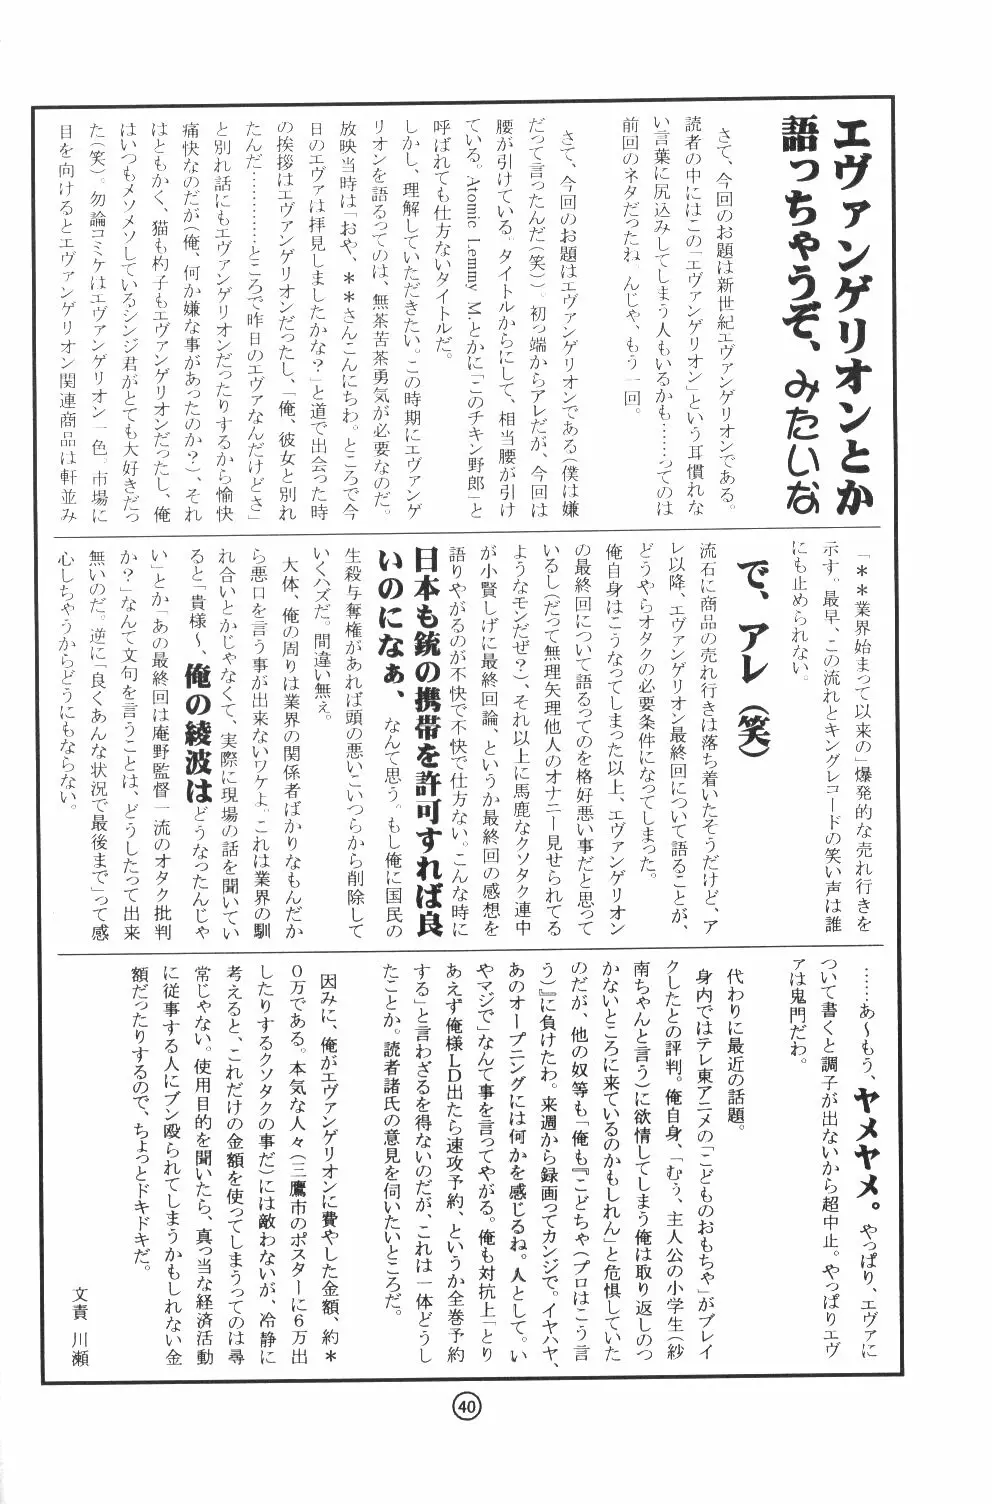 エヴァンゲリオンとか
語っちゃうぞ、みたいな
さて、今回のお題は新世紀エヴァンゲリオンである。
読者の中にはこの「エヴァンゲリオン」という耳慣れな
い言葉に尻込みしてしまう人もいるかも……ってのは
前回のネタだったね。んじゃ、もう一回。
さて、今回のお題はエヴァンゲリオンである(僕は嫌
だって言ったんだ(笑))。初っ端からアレだが、今回は
腰が引けている。タイトルからにして、相当腰が引け
ている。Atomic Lemmy M.とかに「このチキン野郎」と
呼ばれても仕方ないタイトルだ。
しかし、理解していただきたい。この時期にエヴァンゲ
リオンを語るってのは、無茶苦茶勇気が必要なのだ。
放映当時は「おや、＊＊さんこんにちわ。ところで今
日のエヴァは拝見しましたかな?」と道で出会った時
の挨拶はエヴァンゲリオンだったし、「俺、彼女と別れ
たんだ…………ところで昨日のエヴァなんだけどさ」
と別れ話にもエヴァンゲリオンだったりするから愉快
痛快なのだが(俺、何か嫌な事があったのか?)、それ
はともかく、猫も杓子もエヴァンゲリオンだったし、俺
はいつもメソメソしているシンジ君がとても大好きだっ
た(笑)。勿論コミケはエヴァンゲリオン一色。市場に
目を向けるとエヴァンゲリオン関連商品は軒並み
「＊＊業界始まって以来の」爆発的な売れ行きを
示す。最早、この流れとキングレコードの笑い声は誰
にも止められない。
で、アレ(笑)
流石に商品の売れ行きは落ち着いたそうだけど、ア
レ以降、エヴァンゲリオン最終回について語ることが、
どうやらオタクの必要条件になってしまった。
俺自身はこうなってしまった以上、エヴァンゲリオン
の最終回について語るってのを格好悪い事だと思って
いるし(だって無理矢理他人のオナニー見せられてる
ようなモンだぜ?)、それ以上に馬鹿なクソタク連中
が小賢しげに最終回論、というか最終回の感想を
語りやがるのが不快で不快で仕方ない。こんな時に
日本も銃の携帯を許可すれば良
いのになぁ、なんて思う。もし俺に国民の
生殺与奪権があれば頭の悪いこいつらから削除して
いくハズだ。間違い無ぇ。
大体、俺の周りは業界の関係者ばかりなもんだか
ら悪口を言う事が出来ないワケよ。これは業界の馴
れ合いとかじゃなくて、実際に現場の話を聞いてい
ると「貴様～、俺の綾波はどうなったんじゃ
い」とか「あの最終回は庵野監督一流のオタク批判
か?」なんて文句を言うことは、どうしたって出来
無いのだ。逆に「良くあんな状況で最後まで」って感
心しちゃうからどうにもならない。
……あ～もう、ヤメヤメ。やっぱり、エヴァに
ついて書くと調子が出ないから超中止。やっぱりエヴ
ァは鬼門だわ。
代わりに最近の話題。
身内ではテレ東アニメの「こどものおもちゃ」がブレイ
クしたとの評判。俺自身、「むう、主人公の小学生(紗
南ちゃんと言う)に欲情してしまう俺は取り返しのつ
かないところに来ているのかもしれん」と危惧していた
のだが、他の奴等も「俺も『こどちゃ(プロはこう言
う)』に負けたわ。来週から録画ってカンジで。イヤハヤ、
あのオープニングには何かを感じるね。人として。い
やマジで」なんて事を言ってやがる。俺も対抗上「とり
あえず俺様LD出たら速攻予約、というか全巻予約
する」と言わざるを得ないのだが、これは一体どうし
たことか。読者諸氏の意見を伺いたいところだ。
因みに、俺がエヴァンゲリオンに費やした金額、約＊
0万である。本気な人々(三鷹市のポスターに6万出
したりするクソタクの事だ)には敵わないが、冷静に
考えると、これだけの金額を使ってしまうってのは尋
常じゃない。使用目的を聞いたら、真っ当な経済活動
に従事する人にブン殴られてしまうかもしれない金
額だったりするので、ちょっとドキドキだ。
文責 川瀬
40